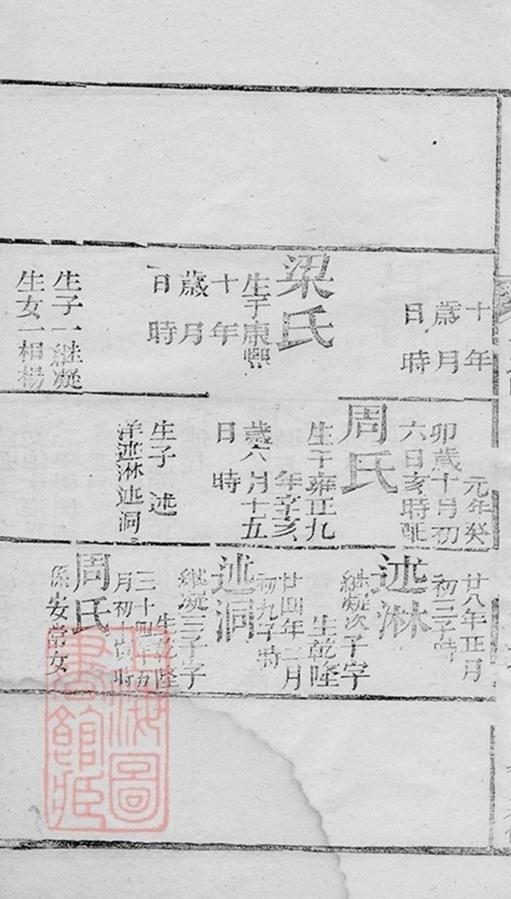 十年
歲月
日時
梁氏
生于康熙
十年
歲月
日時
生子一繼凝
生女一相楊
元年癸
卯歲十月初
六日亥時
周氏
生于雍正九
年辛亥
歲六月十五
日時
生子述
洋述淋述洞
廿八年正月
初三子時
述淋
繼凝次子字
生乾隆
廿四年二月
初九子時
述洞
繼凝三子字
生乾隆
三十四年五
月初時
周氏
係安常女
上海圖
書館藏